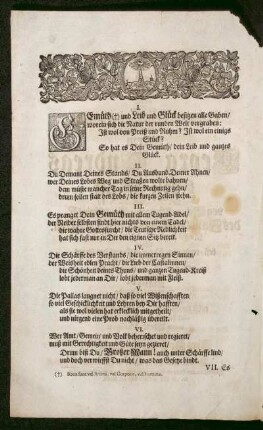 I.
GEmüth(†) und Leib und Glück besitzen alle Gaben/
wor ein sich die Natur der runden Welt eingraben:
Ist wol von Preiß und Ruhm? Ist wol ein einigs
Stück?
So hat es Dein Gemüth/ dein Leib und gantzes
Glück.
II.
Du Demant Deines Stands/ Du Ausbund Deiner Ahnen/
wer Deines Lobes Weg und Strassen wolte bahnen/
dem würde mancher Tag in seine Rechnung gehn/
drum sollen statt des Lobs/ die kurtzen Zeilen stehn.
III.
Es prangt Dein Gemüth mit allem Tugend-Adel/
der Neider selbsten findt hier nichts von einem Tadel/
die wahre Gottesfurcht/ die Teutsche Redlichkeit
hat sich fast nur in Dir den eignen Sitz bereit.
IV.
Die Schärffe des Verstands/ die immerregen Sinnen/
der Weisheit edlen Pracht/ die Lieb der Castalinnen/
die Schönheit deines Thuns/ und gantzen Tugend-Kreiß
lobt jederman an Dir/ lobt jederman mit Fleiß.
V.
Die Pallas laugnet nicht/ daß so viel Wissenschafften
so viel Geschicklichkeit und Lehren bey Dir hafften/
als sie wol vielen hat erklecklich mitgetheilt/
und nirgend eine Prob nachläßig übereilt.
VI.
Wer Amt/ Gewerb/ und Volk beherrschet und regieret/
muß mit Gerechtigkeit und Güte seyn gezieret/
Drum bist Du/ Großer Mann! auch unter Schärffe lind/
und doch verwirffst Du nicht/ was das Gesetz bindt.
VII. Es
(†) Bona sunt vel Animi, vel Corporis, vel Fortunæ.